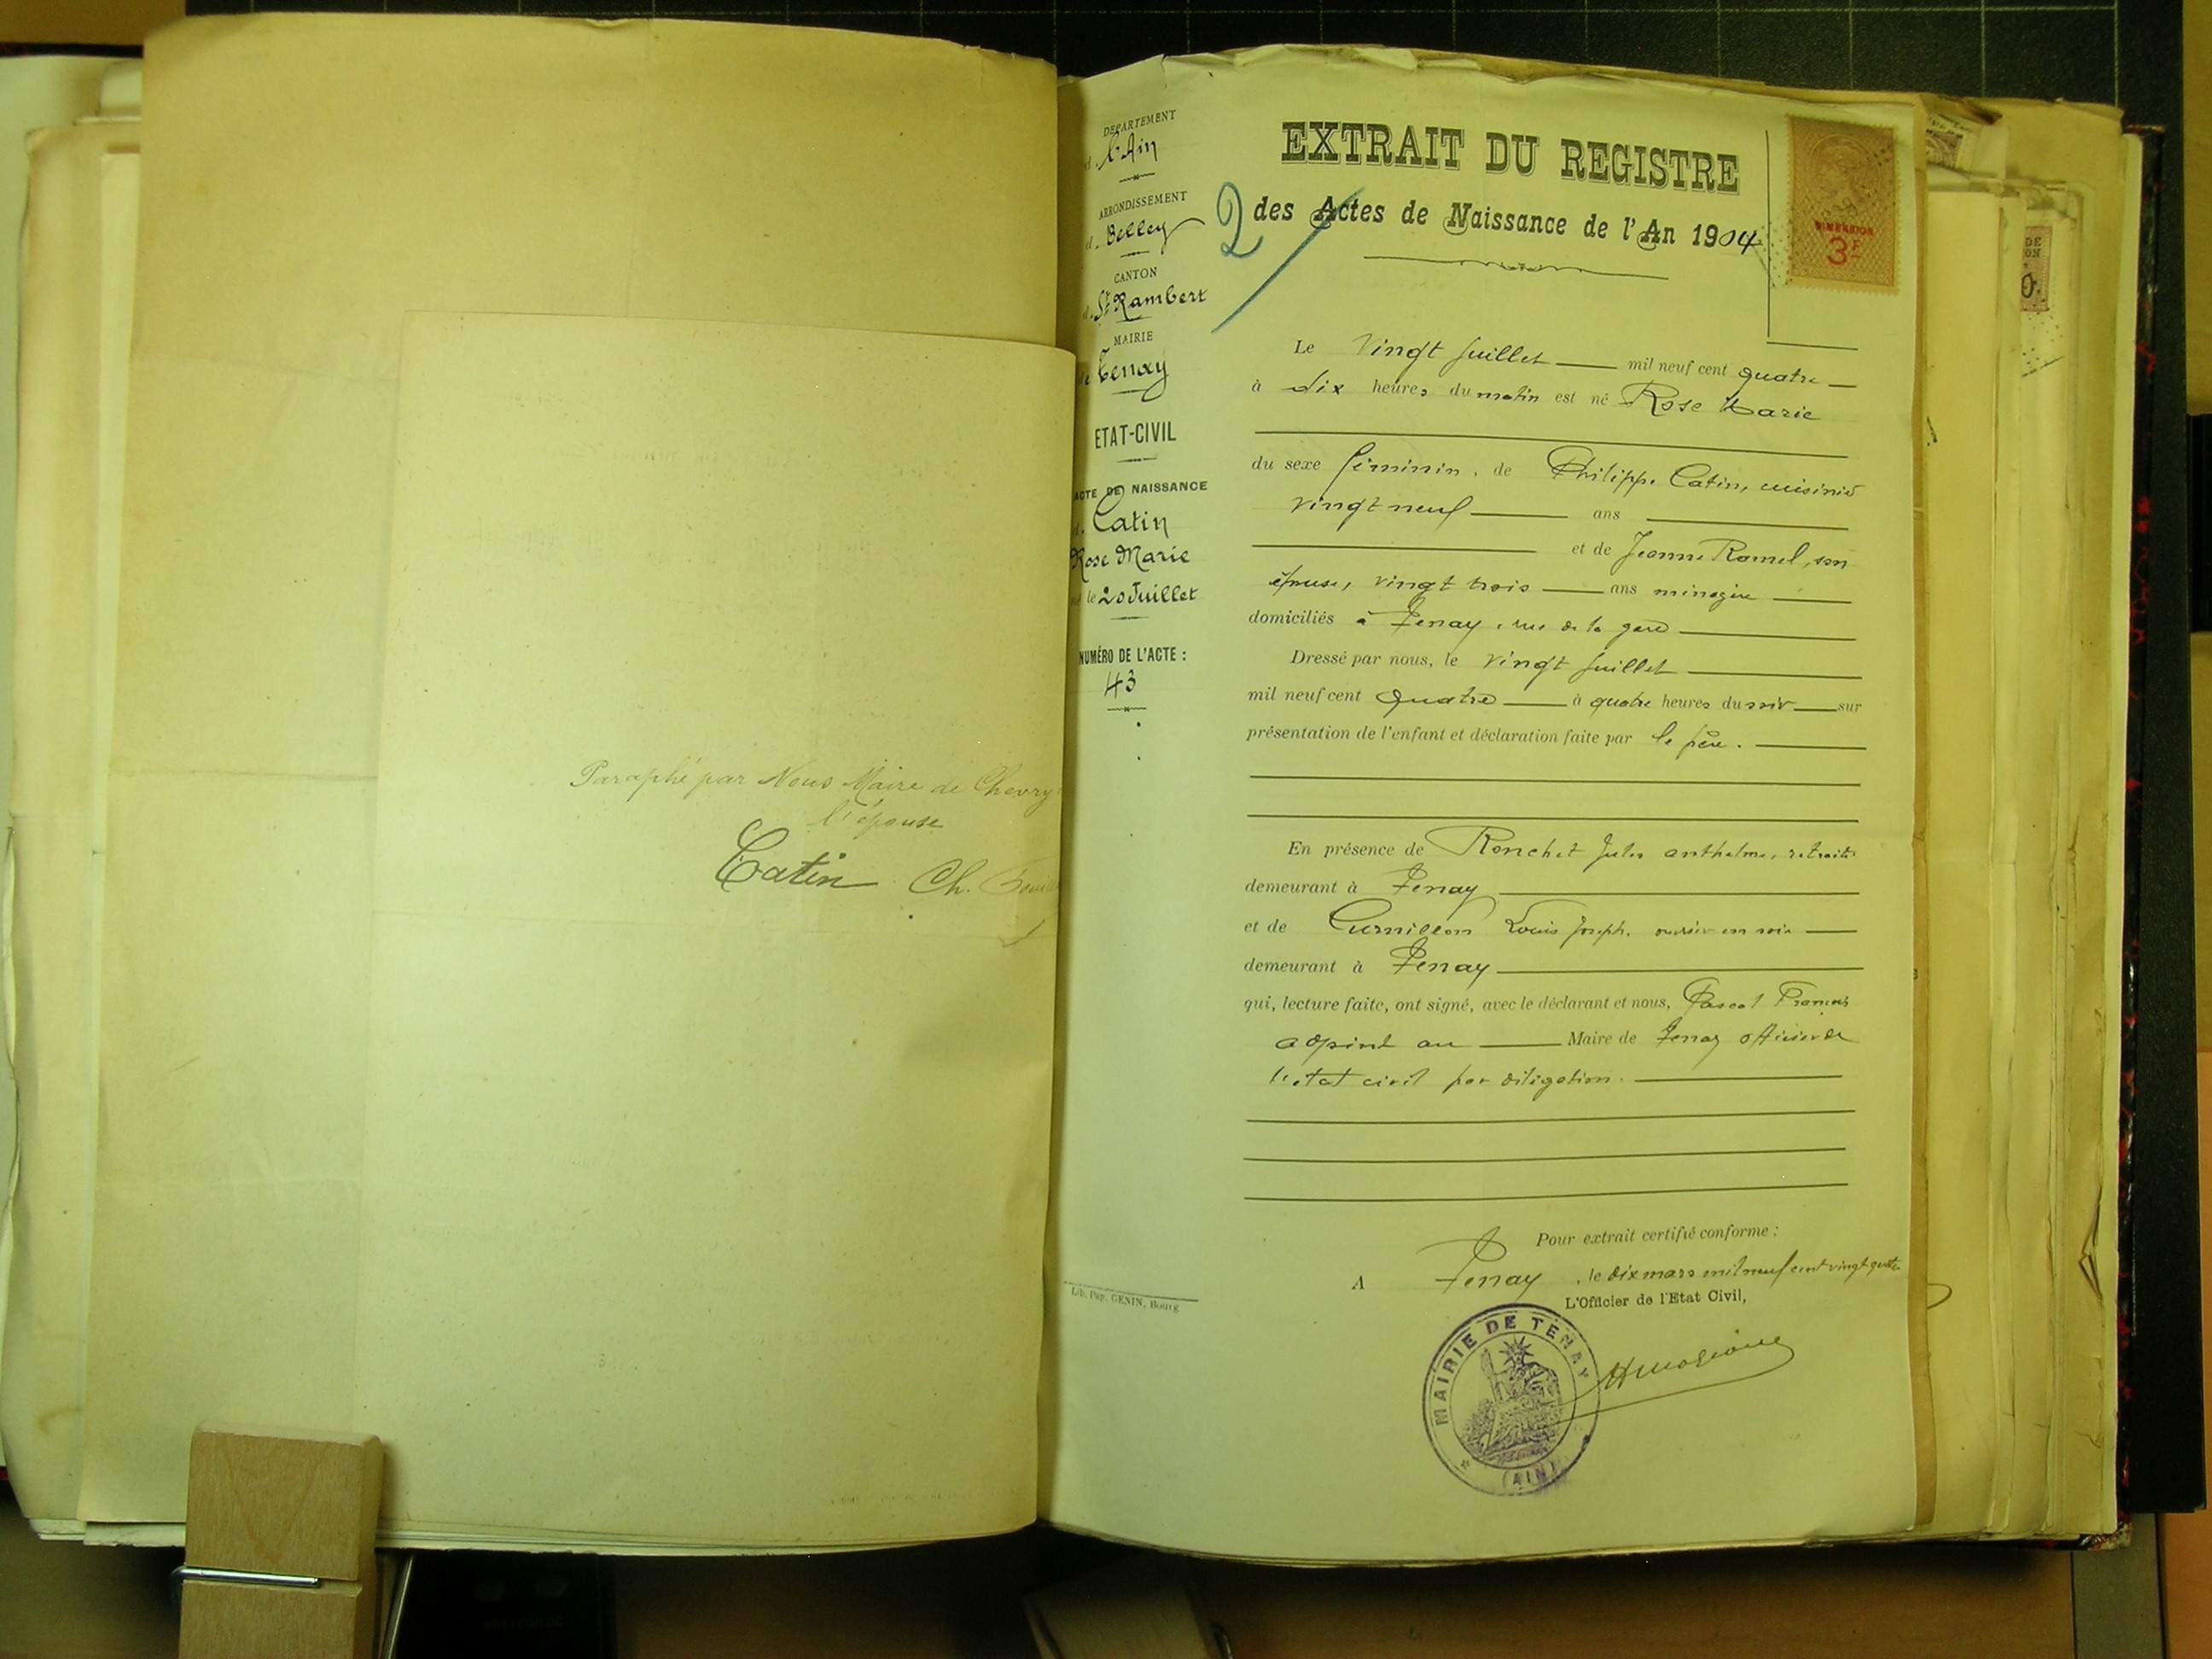 Paraphé par Nous Maire de Chevry
l'épouse
Catin Ch.
DÉPARTEMENT
d. l'Ain
ARRONDISSEMENT
d. Belley
CANTON
d. St Rambert
MAIRIE
de Tenay
ETAT-CIVIL
ACTE DE NAISSANCE
d. Catin
Rose Marie
le 20 Juillet
NUMÉRO DE L'ACTE :
43
Lib. Pap. GENIN, Bourg
EXTRAIT DU REGISTRE
2 des Actes de Naissance de l'An 1904
DIMENSION
3F
Le vingt juillet mil neuf cent quatre
à dix heures du matin est né Rose Marie
du sexe féminin, de Philippe Catin, cuisinier
vingt neuf ans
et de Jeanne Ramel, son
épouse, vingt trois ans ménagère
domiciliés à Tenay, rue de la gare
Dressé par nous, le vingt juillet
mil neuf cent quatre à quatre heures du soir sur
présentation de l'enfant et déclaration faite par le père.
En présence de Ronchet Jules anthelme, retraité
demeurant à Tenay
et de Louis Joseph, ouvrier en soie
demeurant à Tenay
qui, lecture faite, ont signé, avec le déclarant et nous, Pascal François
adjoint au Maire de Tenay officier de
l'état civil par délégation.
Pour extrait certifié conforme :
A Tenay, le dix mars mil neuf cent vingt quatre
L'Officier de l'Etat Civil,
MAIRIE DE TENAY
(AIN)